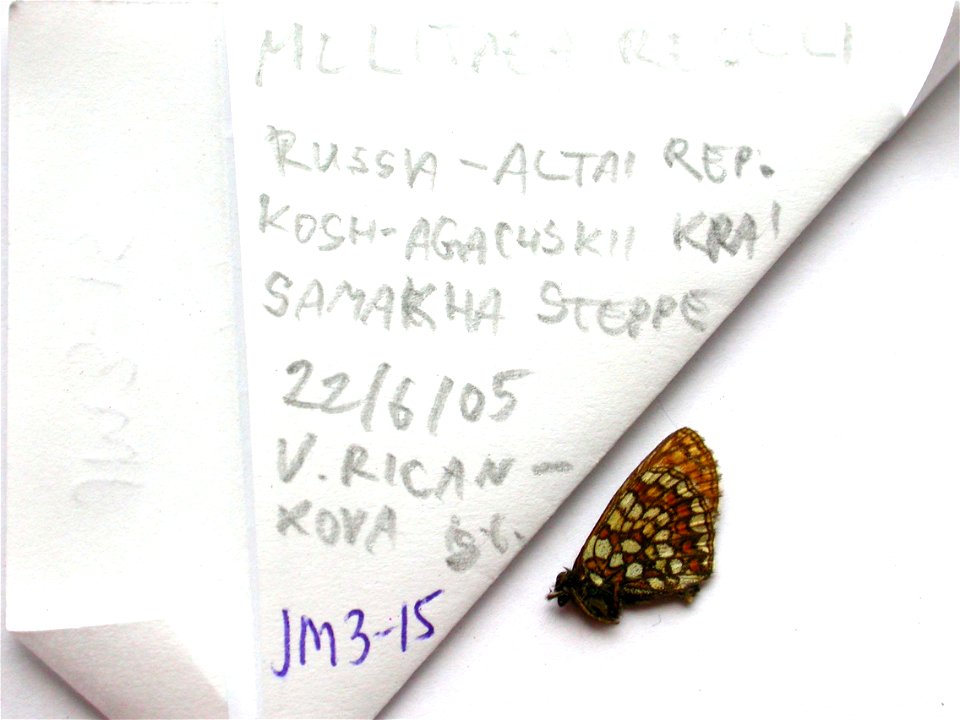 MELITAEA
RUSSIA - ALTAI REP.
KOSH-AGACHSKII KRAI
SAMAKHA STEPPE
22/6/05
V. RICAN-
KOVA
JM3-15